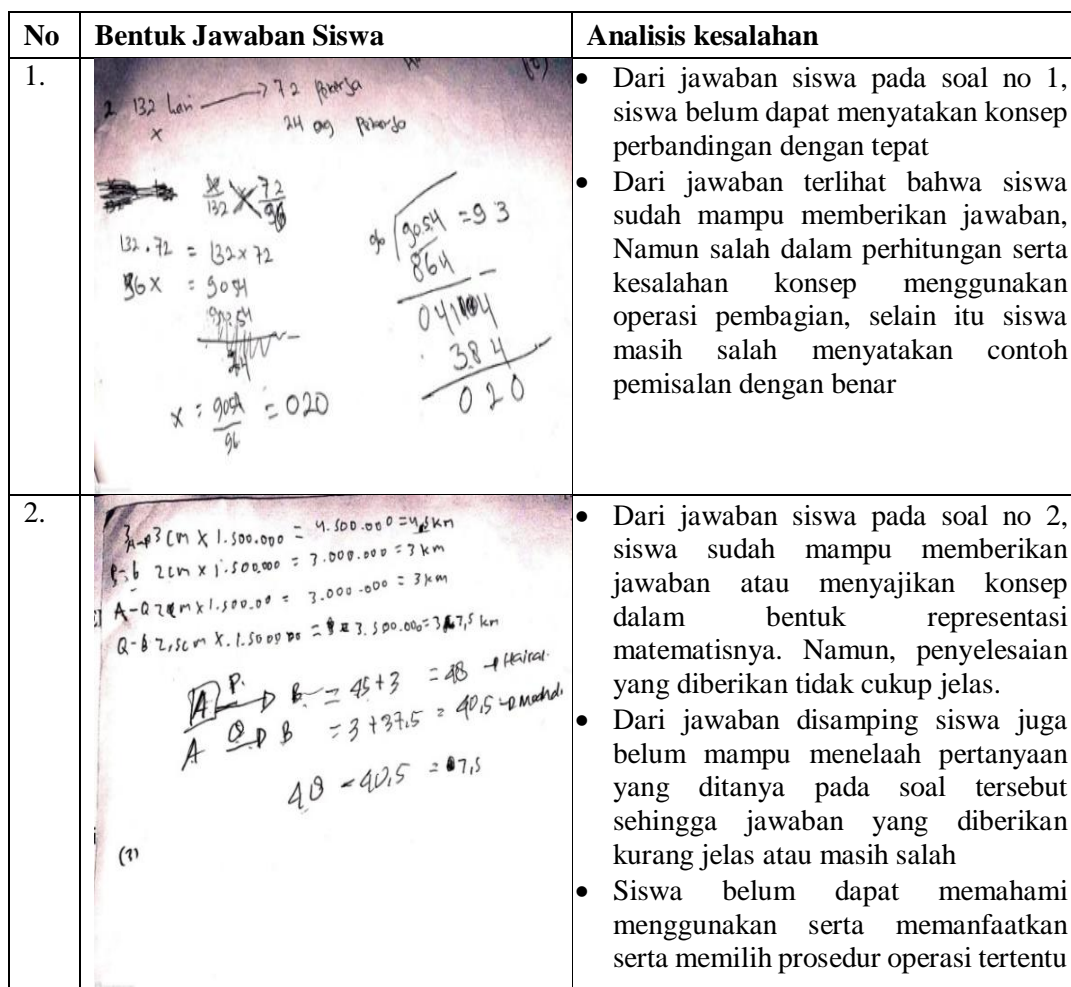 No Bentuk Jawaban Siswa Analisis kesalahan
1.
132 hari → 72 Pekerja
x 24 Pekerja
x/132 72/96
132.72 = 132 x 72
96x = 9054
x = 9054/96 = 020
9054 = 93
864
384
020
• Dari jawaban siswa pada soal no 1,
siswa belum dapat menyatakan konsep
perbandingan dengan tepat
• Dari jawaban terlihat bahwa siswa
sudah mampu memberikan jawaban,
Namun salah dalam perhitungan serta
kesalahan konsep menggunakan
operasi pembagian, selain itu siswa
masih salah menyatakan contoh
pemisalan dengan benar
2.
3 cm x 1.500.000 = 4.500.000 = 4,5 km
2 cm x 1.500.000 = 3.000.000 = 3 km
A-Q 2 cm x 1.500.00 = 3.000.000 = 3 km
Q-B 2,5 cm x 1.500000 = 3.500.000 = 37,5 km
A P B = 45+3 = 48
A Q B = 3+37,5 = 40,5
48 - 40,5 = 7,5
(3)
• Dari jawaban siswa pada soal no 2,
siswa sudah mampu memberikan
jawaban atau menyajikan konsep
dalam bentuk representasi
matematisnya. Namun, penyelesaian
yang diberikan tidak cukup jelas.
• Dari jawaban disamping siswa juga
belum mampu menelaah pertanyaan
yang ditanya pada soal tersebut
sehingga jawaban yang diberikan
kurang jelas atau masih salah
• Siswa belum dapat memahami
menggunakan serta memanfaatkan
serta memilih prosedur operasi tertentu